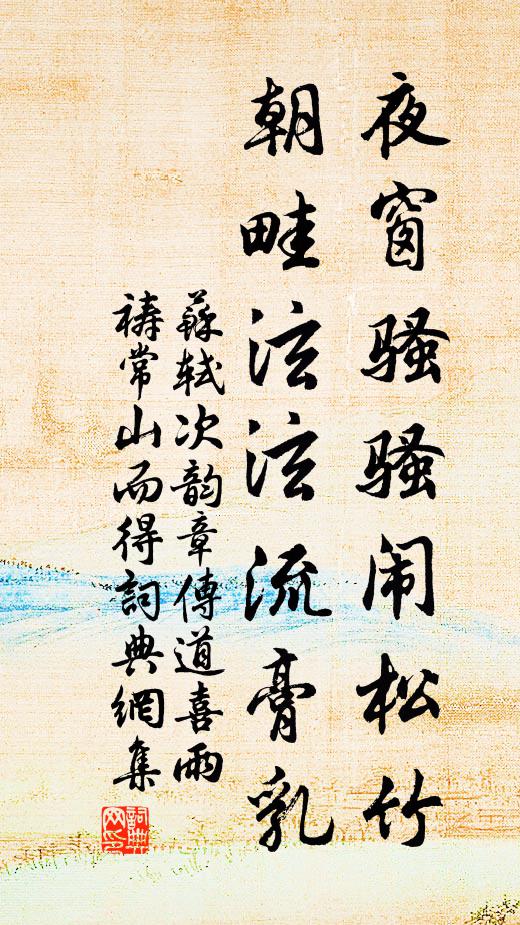 夜窗骚骚闹松竹
朝畦泫泫流膏乳
蘇軾次韵章傳道喜雨
祷常山而得詞典網集
詞典网印